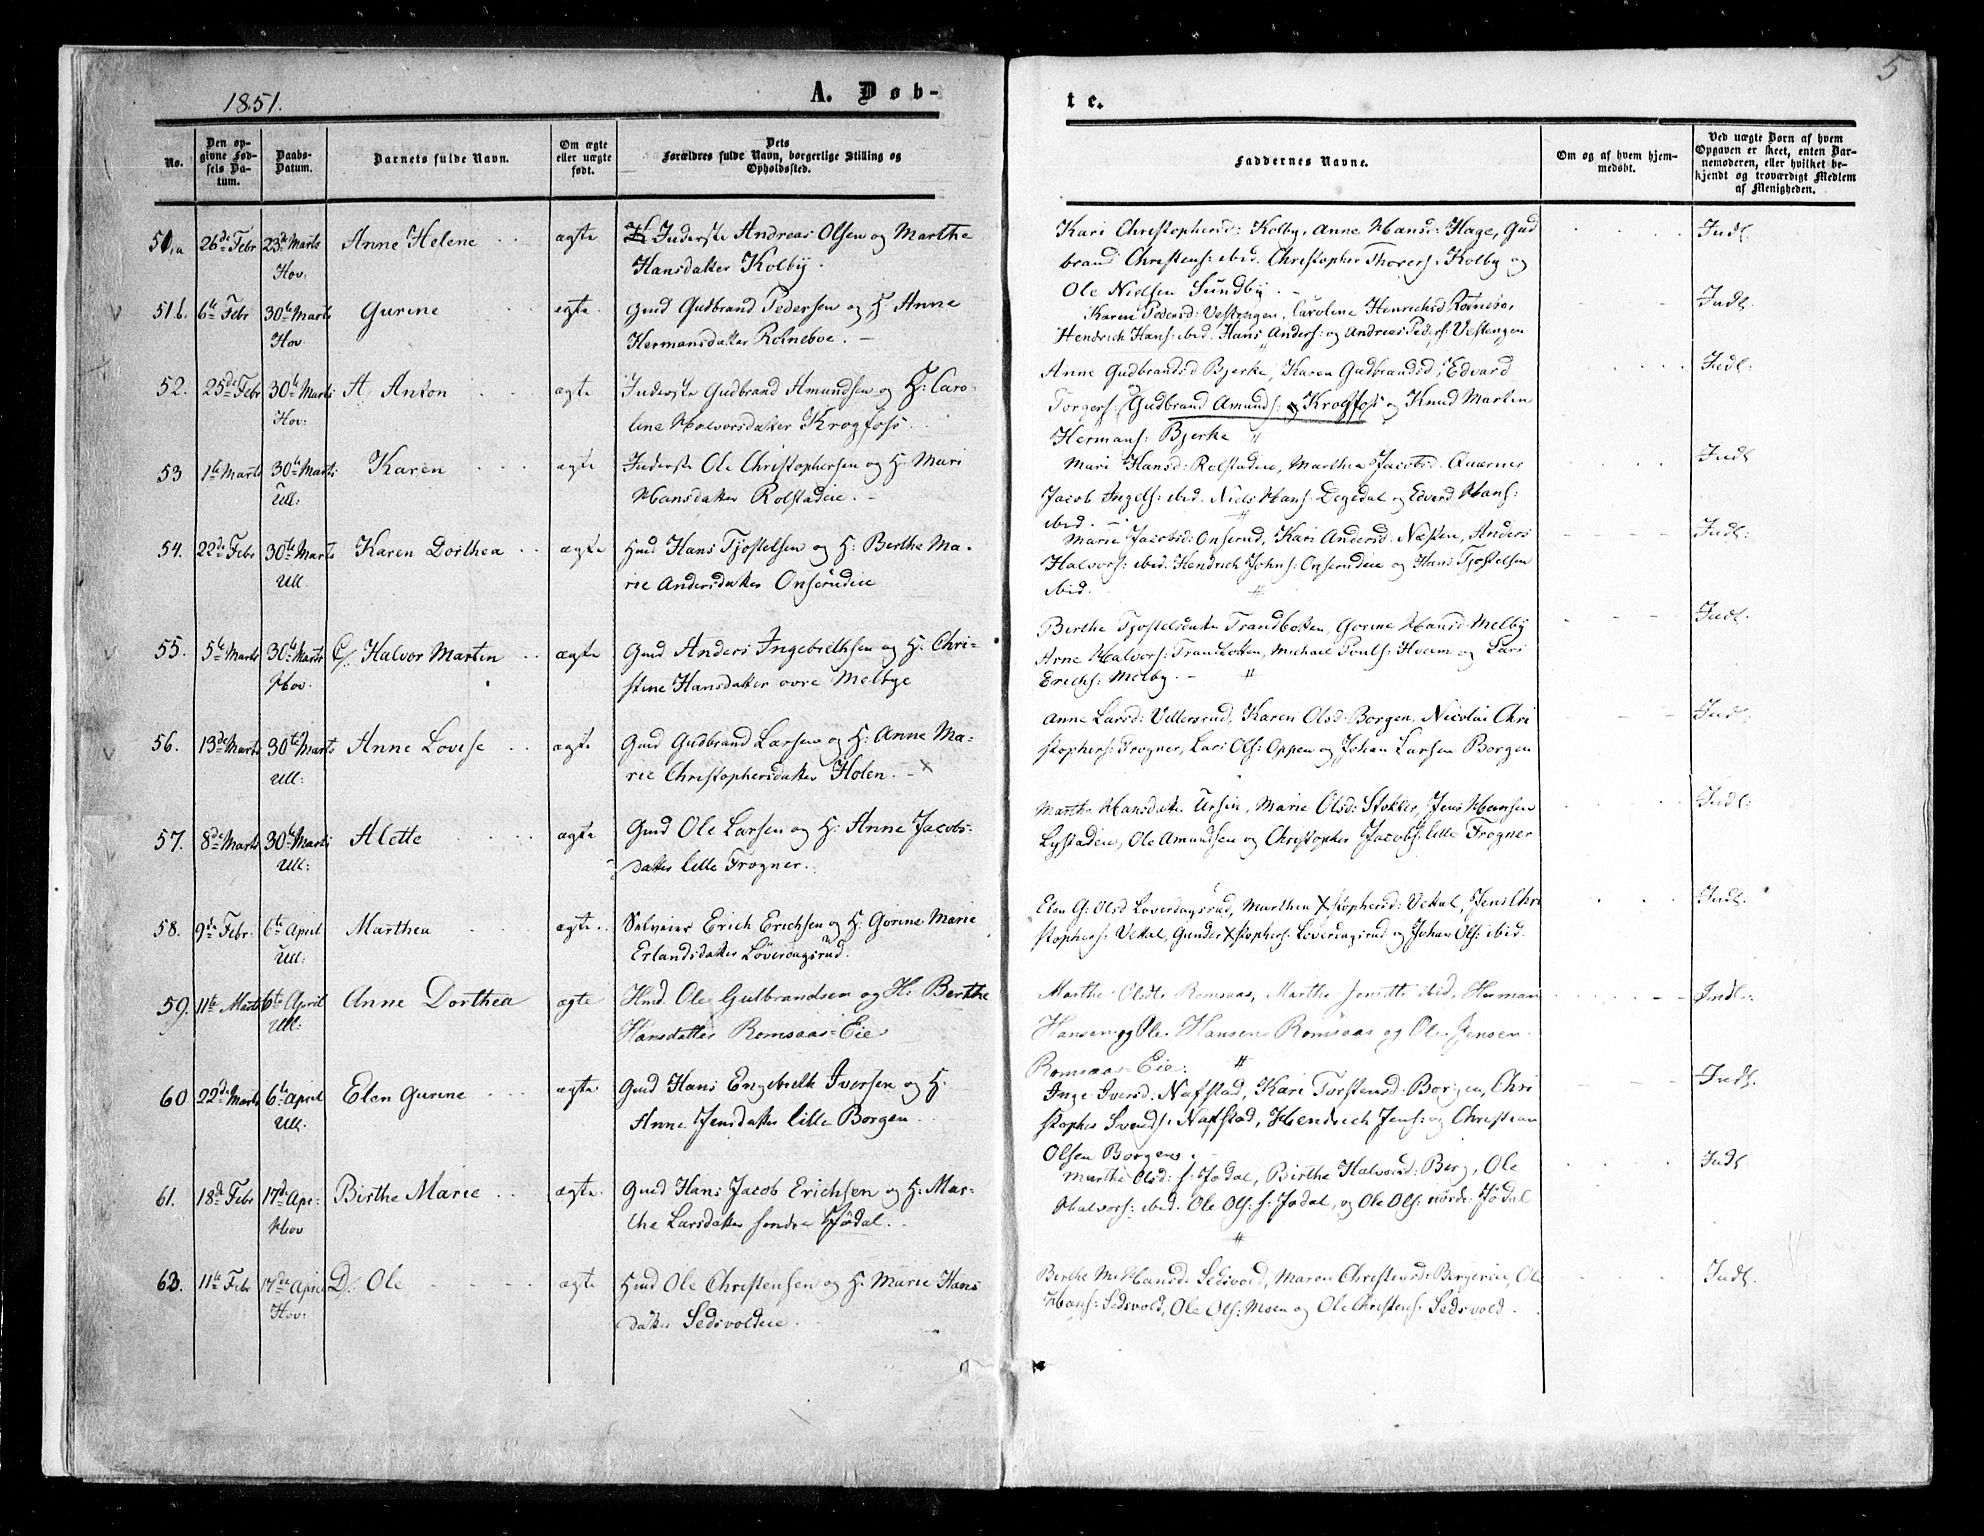 5
1851.
A. Døb-
te.
No.
Den op-
givne Fød-
sels Da-
tum.
Daabs-
Datum.
Barnets fulde Navn.
Om ægte
eller uægte
født.
Dets
Forældres fulde Navn, borgerlige Stilling og
Opholdssted.
Faddernes Navne.
Om og af hvem hjem-
medøbt.
Ved uægte Børn af hvem
Opgaven er skeet, enten Bar-
nemoderen, eller hvilket be-
kjendt og troværdigt Medlem
af Menigheden.
51,a 26de Febr 23de Marts Anne Helene ægte Inderste Andreas Olsen og Marthe
Hov: Hansdatter Kolby.
Kari Christophersd: Kolby, Anne Hansd: Hage, Gud
brand Christens: ibid. Christopher Thorers: Kolby og
Ole Nielsen Sundby.
Indl.
51 b. 6te Febr 30te Marts Gurine egte. Gmd Gudbrand Pedersen og H Anne
Hov Hermansdatter Rotneboe.
Karen Pedersd: Vestengen, Caroline Henrichsd Rotnebo,
Hendrich Hans: ibid. Hans Anders: og Andreas Peders: Vestengen
Indl.
52. 25de Febr 30te Marts A, Anton ægte Inderste Gudbrand Amundsen og H: Caro-
Hov: line Halvorsdatter Krogfoss.
Anne Gudbrandsd Bjerke, Karen Gudbrandsd, Edvard
Torgers: Gudbrand Amunds: Krogfoss og Knud Martin
Hermans: Bjerke
Indl:
53 1te Marts 30te Marts: Karen ægte Inderste Ole Christophersen og H: Mari
Ull: Hansdatter Rolstadeie.
Mari Hansd: Rolstadeie, Marthea Jacobsd. Qværner
Jacob Ingels: ibid. Niels Hans: Degedal og Edvard Hans:
ibid.
Indl
54. 22de Febr 30te Marts Karen Dorthea ægte Hmd Hans Tjostelsen og H: Berthe Ma-
Ull. rie Andersdatter Onserudeie
Marie Jacobsd: Onserud, Kari Andersd: Næsten, Anders
Halvors: ibid. Hendrich Johns: Onserudeie og Hans Tjostelsen
ibid.
Indl:
55. 5te Marts 30te Marts C, Halvor Martin ægte Gmd Anders Ingebrethsen og H: Chri-
Hov. stine Hansdatter øvre Melbye
Birthe Tjostelsdatter Trandbotten, Gorine Hansd Melby
Arne Halvors: Trandbotten, Michael Pouls: Hvam og Lars
Erichs: Melby.
Indl.
56. 13de Marts 30te Marts Anne Lovise ægte Gmd Gudbrand Larsen og H: Anne Ma-
Ull: rie Christophersdatter Holen.
Anne Larsd: Vellersrud, Karen Olsd Borgen, Nicolai Chri
stophers: Frogner, Lars Ols: Oppen og Johan Larsen Borgen
Indl.
57. 8de Marts 30te Marts Alette ægte Gmd Ole Larsen og H: Anne Jacobs-
Ull: datter lille Frogner.
Marthe Hansdatter Ursin, Marie Olsd: Stokker, Jens Hansen
Lystadeie, Ole Amundsen og Christopher Jacobs: lille Frogner
Indl:
58. 9de Febr. 6te April Marthea ægte. Selveier Erich Erichsen og H: Gorine Marie
Ull: Erlandsdatter Løverdagsrud.
Elen G: Olsd Loverdagsrud, Marthea Xstophersd: Vestal, Jens Chri
stophers: Vestal, Gunder Xstophers: Loverdagsrud og Johan Ols: ibid.
Indl.
59. 11te Marts 6te April Anne Dorthea ægte Hmd Ole Gulbrandsen og H: Berthe
Ull: Hansdatter Romsaas-Eie
Marthe Olsdtr Romsaas, Marthe Jensdtr ibid, Herman
Hansen og Ole Hansen Romsaas og Ole Jensen
Romsaas-Eie:
Indl:
60 22de Marts 6te April Elen Gurine ægte Gmd Hans Engebreth Iversen og H.
Ull. Anne Jensdatter lille Borgen.
Inge Iversd: Nafstad, Kari Torstensd: Borgen, Chri
stopher Svends: Nafstad, Hendrich Jens: og Christian
Olsen Borgen.
Indl.
61. 18de Febr 17de Apr: Birthe Marie ægte. Gmd Hans Jacob Erichsen og H: Mar-
Hov the Larsdatter søndre Fjødal.
Marthe Olsd: s: Fjødal, Birthe Halvorsd: Berg, Ole
Halvors: ibid. Ole Ols: s. Fjødal, og Ole Ols: nørdr. Fjødal
Indl
62. 11te Febr 17de April D, Ole ægte Hmd Ole Christensen og H: Marie Hans
Hov: datter Sedsvoldeie
Berthe M: Hansd: Sedsvold, Maren Christensd: Bergerie, Ole
Hans: Sedsvold, Ole Ols: Moen og Ole Christens: Sedsvold.
Indl.